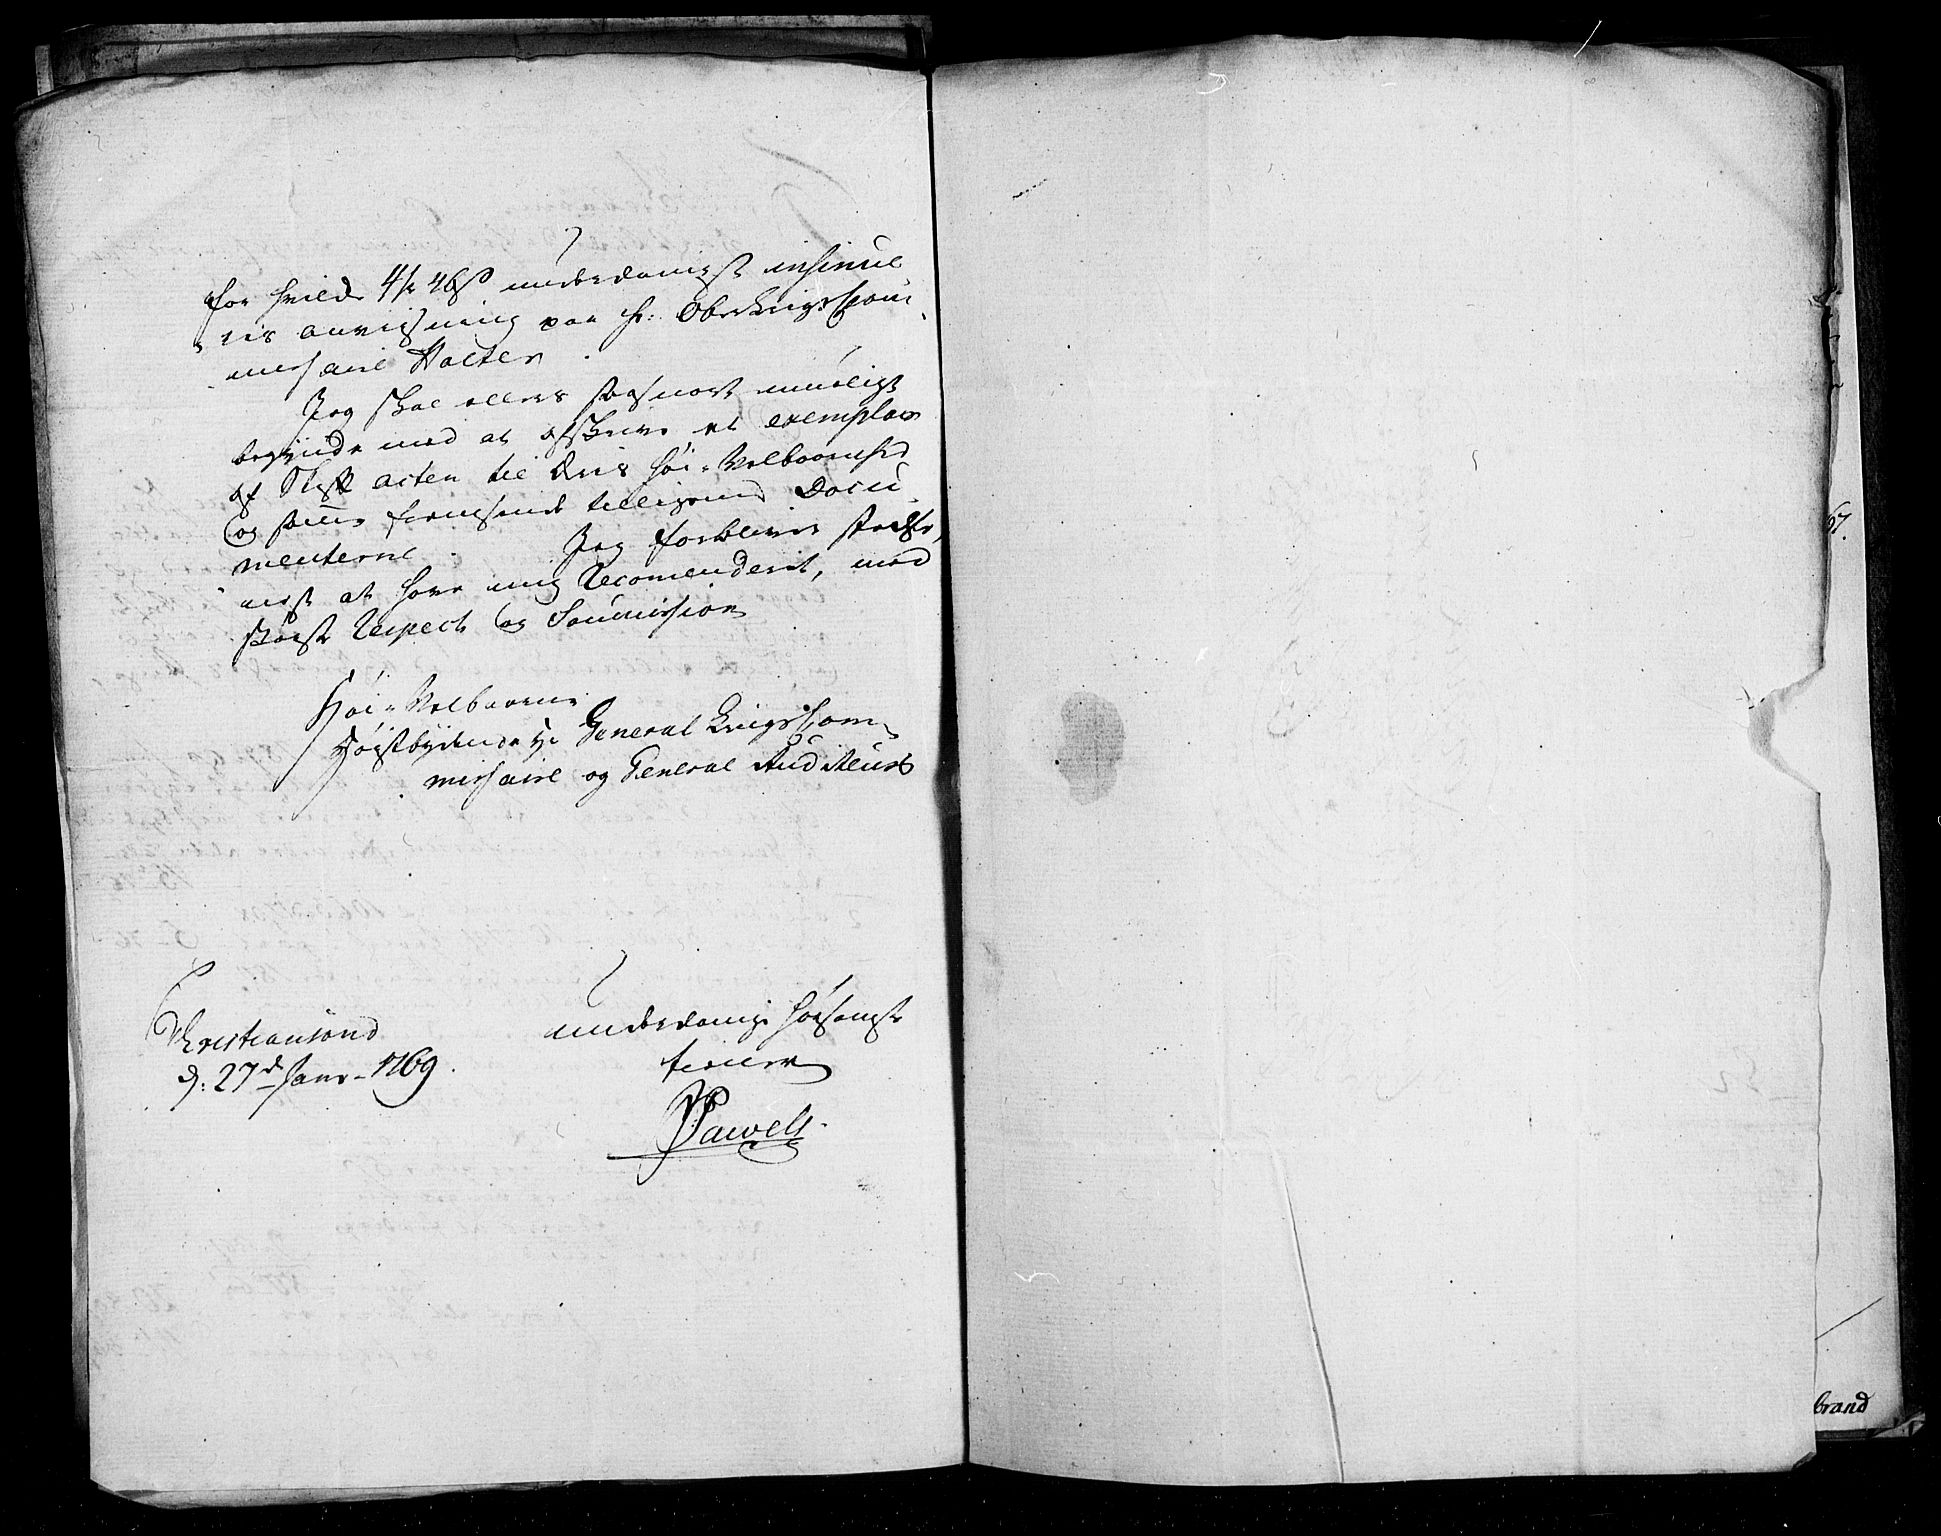 for hvilke 4 r 46 s underdanigst insinue
res anviisning paa Hr: OberKrigsCom
missaire Holter.
Jeg skal ellers snart mueligt
begynde med at afskrive et exemplar
af acten til Deris Høi-Velbaarenhed
og siden fremsende tilligemed Docu-
menterne. Jeg forbliver
nest at have mig Recomenderet, med
største Respect og Soumission
Høi-Velbaarne
Høistbydende Hr General KrigsCom
missaire og General Auditeurs
Christiansand
d: 27d Janr 1769.
underdanig hørsamste
tiener
Pawels
67.
brand